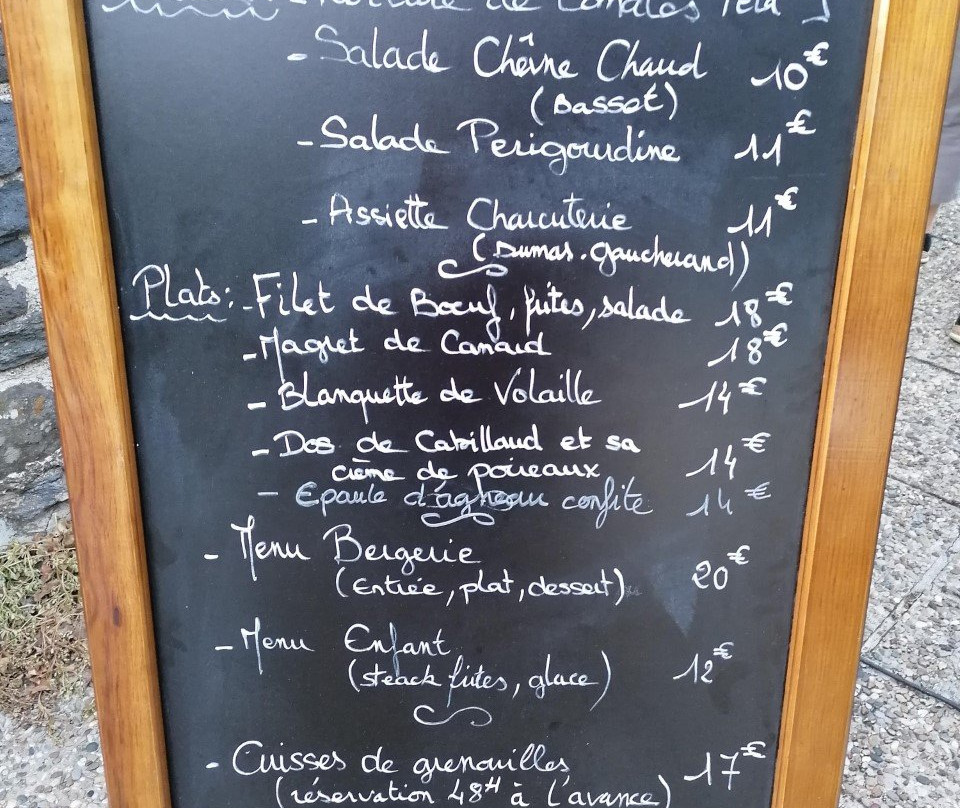 de tomates
- Salade Chèvre Chaud 10€
(Basset)
- Salade Perigourdine 11€
- Assiette Charcuterie 11€
(Dumas. Gaucherand)
Plats: - Filet de Bœuf, frites, salade 18€
- Magret de Canard 18€
- Blanquette de Volaille 14€
- Dos de Cabillaud et sa 14€
crème de poireaux
- Epaule d'agneau confite 14€
- Menu Bergerie 20€
(Entrée, plat, dessert)
- Menu Enfant 12€
(steack frites, glace)
- Cuisses de grenouilles 17€
(réservation 48H à l'avance)